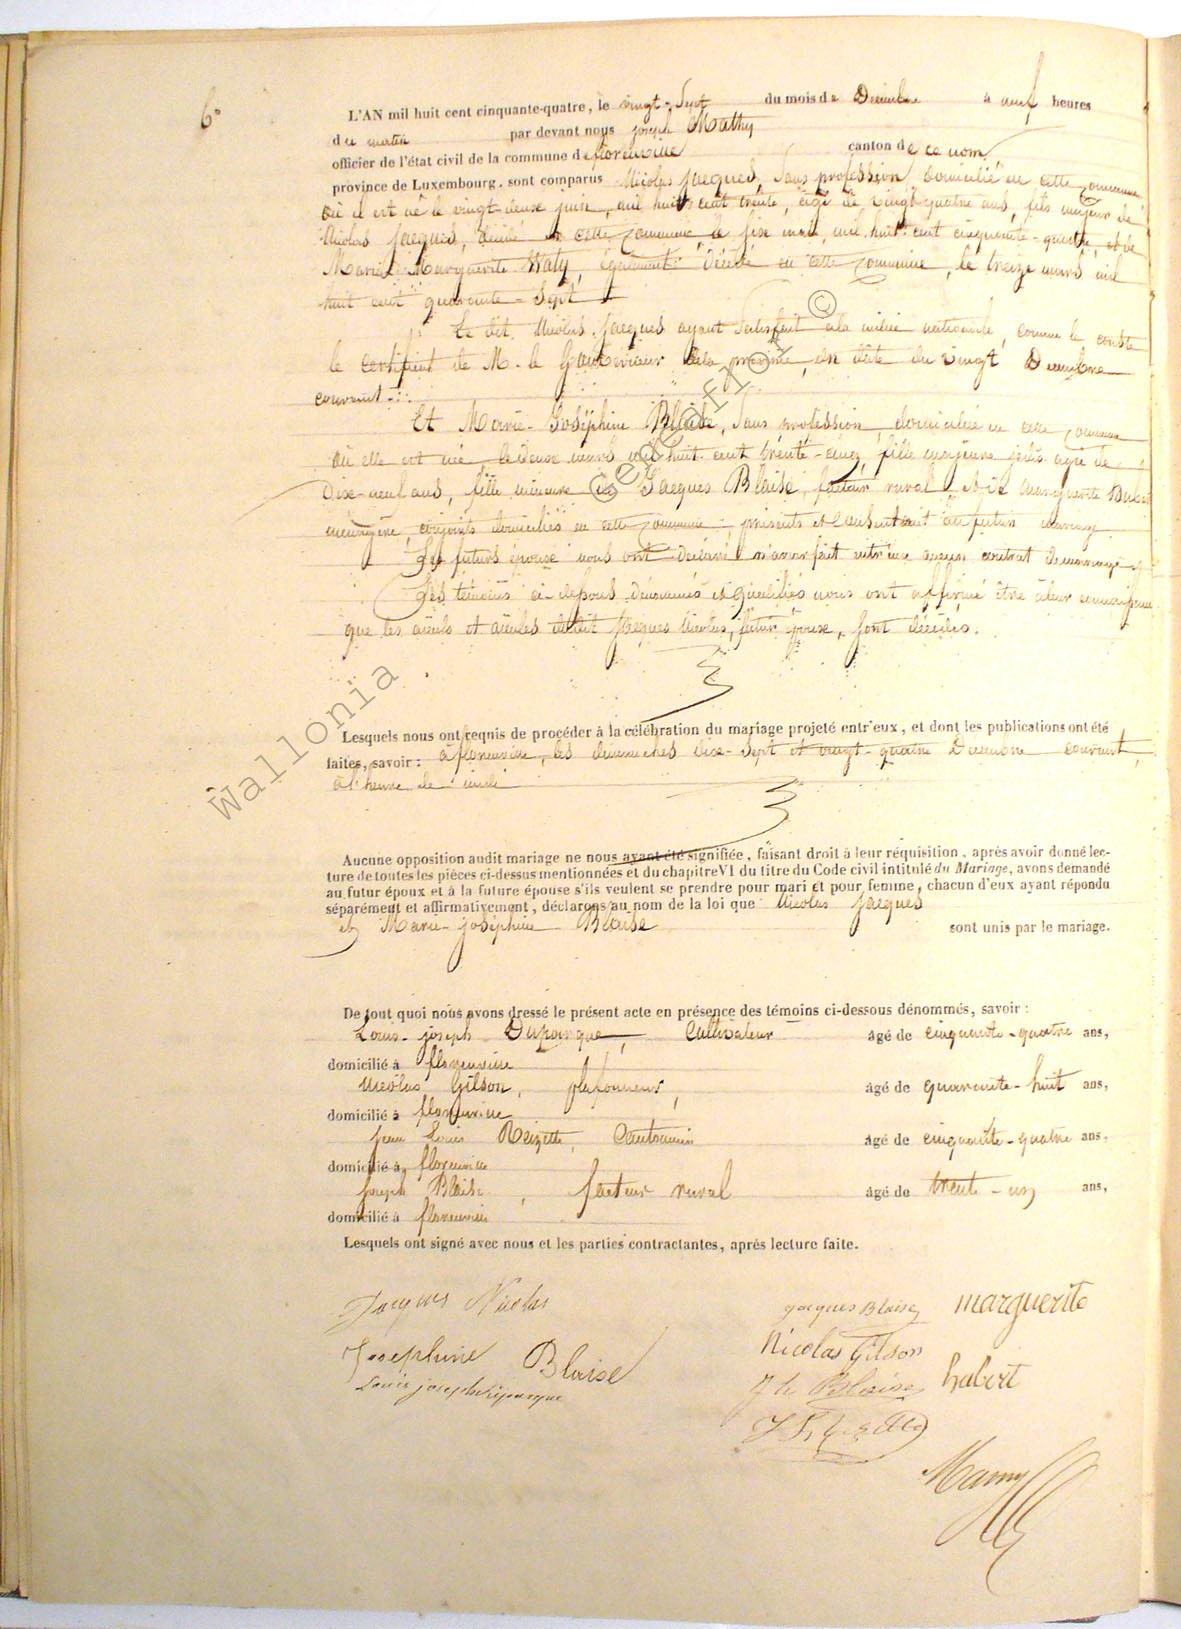 6°
L'AN mil huit cent cinquante-quatre, le vingt-Sept du mois de Decembre à neuf heures
du matin par devant nous joseph Mathy
officier de l'état civil de la commune de florenville canton de ce nom
province de Luxembourg, sont comparus Nicolas Jacques, Sans profession, domicilié en cette commune,
où il est né le vingt-deux juin, mil huit cent trente, âgé de vingt quatre ans, fils majeur de
Nicolas Jacques, décédé en cette commune, le six mai, mil huit cent cinquante-quatre, et de
Marie Marguerite Waly, également décédée en cette commune, le treize mars mil
huit cent quarante-Sept
Le dit Nicolas Jacques ayant Satisfait à la milice nationale, comme le conste
le certificat de M. le Gouverneur de la province, en date du vingt Decembre
courant.
Et Marie-Joséphine Blaise, Sans profession, domiciliée en cette commune
où elle est née le douze mars mil huit cent trente-cinq, fille majeure âgée de
Dix-neuf ans, fille mineure de Jacques Blaise, facteur rural et de Marguerite
ménagère, conjoints domiciliés en cette commune, présents et consentant au futur mariage
Les futurs époux nous ont déclaré n'avoir fait entr'eux aucun contrat de mariage
Les témoins ci-dessous dénommés et qualifiés nous ont affirmé être à leur connaissance
que les aïeuls et aïeules dudit Jacques Nicolas, futur époux, sont décédés.
Lesquels nous ont requis de procéder à la célébration du mariage projeté entr'eux, et dont les publications ont été
faites, savoir : à florenville, les dimanches dix-Sept et vingt-quatre Decembre courant,
à l'heure de midi
Aucune opposition audit mariage ne nous ayant été signifiée, faisant droit à leur réquisition, après avoir donné lec-
ture de toutes les pièces ci-dessus mentionnées et du chapitre VI du titre du Code civil intitulé du Mariage, avons demandé
au futur époux et à la future épouse s'ils veulent se prendre pour mari et pour femme, chacun d'eux ayant répondu
séparément et affirmativement, déclarons au nom de la loi que Nicolas Jacques
et Marie-joséphine Blaise sont unis par le mariage.
De tout quoi nous avons dressé le présent acte en présence des témoins ci-dessous dénommés, savoir :
Louis-joseph Duparque, Cultivateur âgé de cinquante-quatre ans,
domicilié à florenville
Nicolas Gilson, plafonneur, âgé de quarante-huit ans,
domicilié à florenville
Jean Louis Reizette, Cantonnier âgé de cinquante-quatre ans,
domicilié à florenville
Joseph Blaise, facteur rural âgé de trente-un ans,
domicilié à florenville
Lesquels ont signé avec nous et les parties contractantes, après lecture faite.
Jacques Nicolas
jacques Blaise marguerite
Josephine Blaise
Nicolas Gilson
habert
Jh Blaise
Wallonia Geneaflor ©